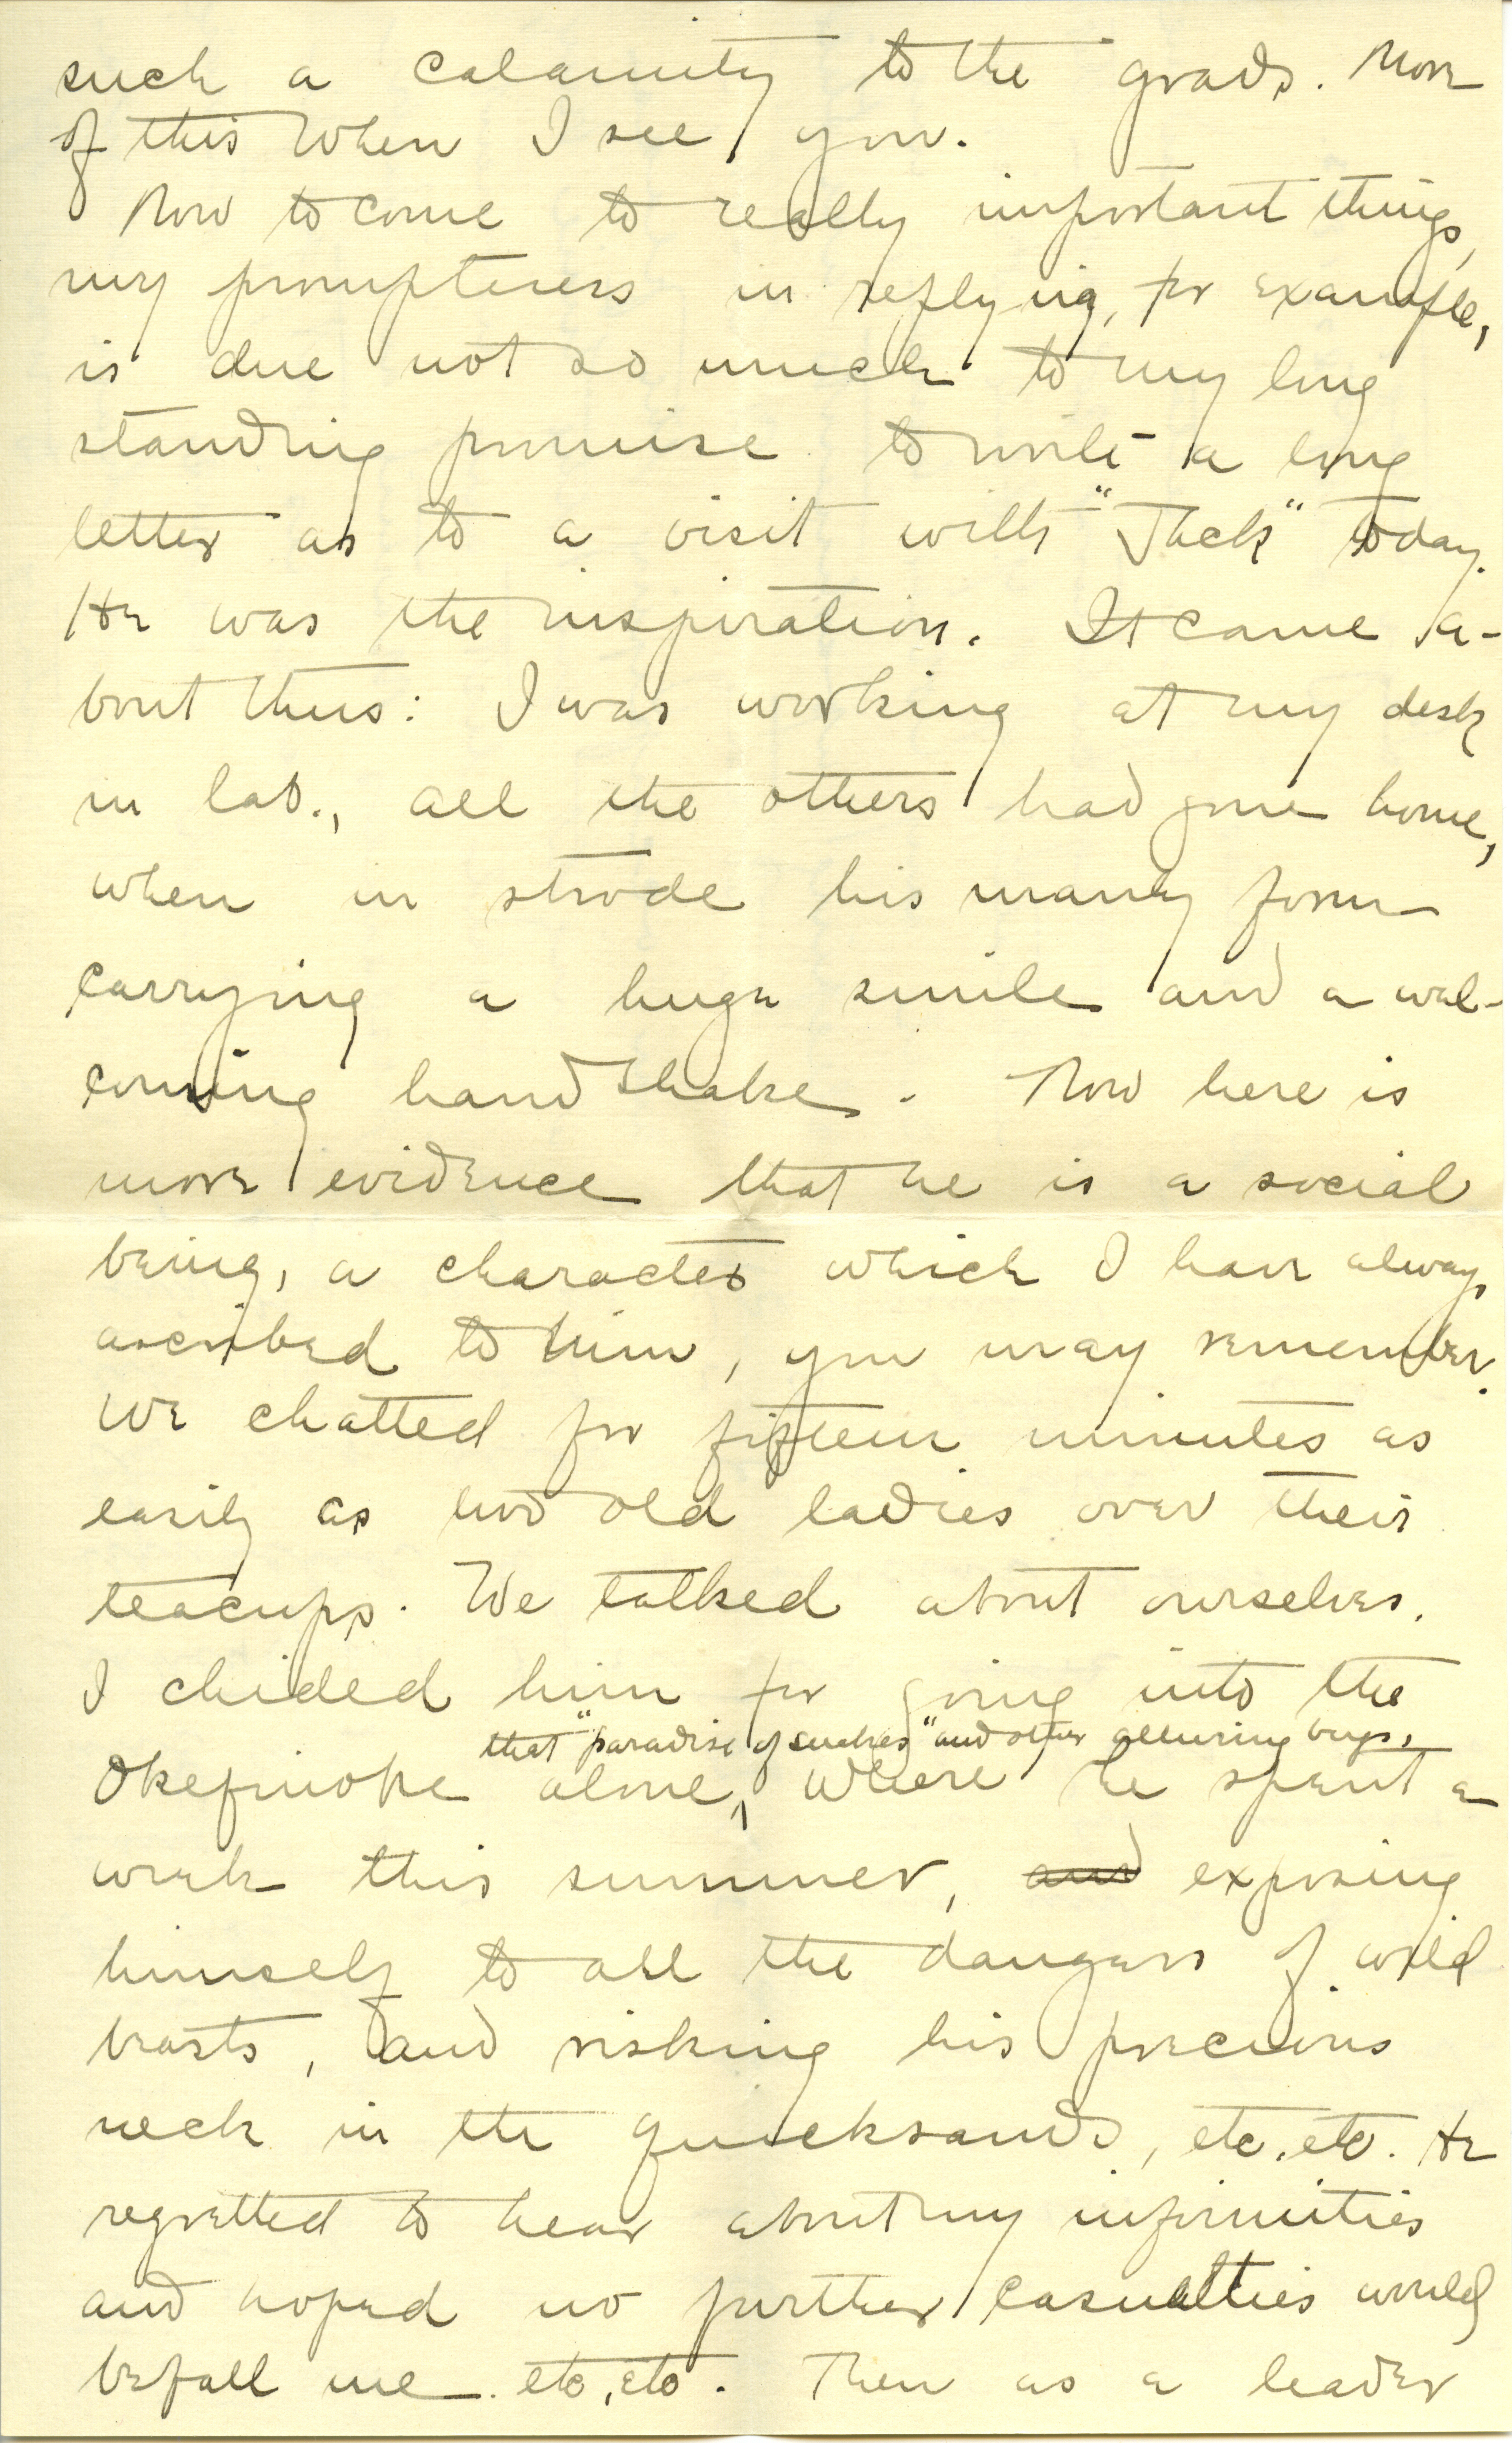 such a calamity to the grads. More
of this when I see you.
Now to come to really important things,
my promptness in replying, for example,
is due not so much to my long
standing promise to write a long
letter as to a visit with "Jack" today.
He was the inspiration. It came a-
bout thus: I was working at my desk
in lab., all the others had gone home,
when in strode his manly form
carrying a huge smile and a wel-
coming handshake. Now here is
more evidence that he is a social
being, a character which I have always
ascribed to him, you may remember.
We chatted for fifteen minutes as
easily as two old ladies over their
teacups. We talked about ourselves.
I chided him for going into the
that "paradise of snakes" and other alluring bugs,
Okefinoke alone, where he spent a
week this summer, and exposing
himself to all the dangers of wild
beasts, and risking his precious
neck in the quicksands, etc., etc. He
regretted to hear about my infirmities
and hoped no further casualties would
befall me. etc., etc. Then as a leader